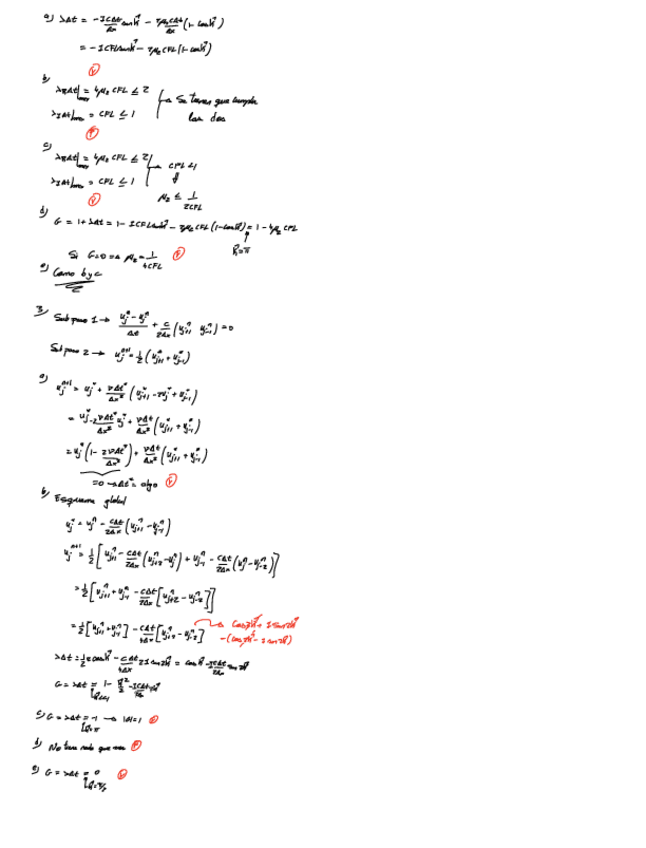 a) λΔt = -I cΔt/Δx sen k̂ - 2μ₂cΔt/Δx (1 - cos k̂)
= -I CFL sen k̂ - 2μ₂ CFL (1 - cos k̂)
V
b)
λ_R Δt| = 4μ₂ CFL ≤ 2
λ_I Δt| = CFL ≤ 1
→ Se tienen que cumplir
las dos
F
c)
λ_R Δt| = 4μ₂ CFL ≤ 2
λ_I Δt| = CFL ≤ 1
→ CFL ≤ 1
⇓
μ₂ ≤ 1/2CFL
V
d)
G = 1 + λΔt = 1 - I CFL sen k̂ - 2μ₂ CFL (1 - cos k̂) = 1 - 4μ₂ CFL
k̂ = π
Si G = 0 ⇒ μ₂ = 1/4CFL
V
e) Como b y c
3) Subpaso 1 → (u_j^* - u_j^n)/Δt + c/2Δx (u_{j+1}^n u_{j-1}^n) = 0
Subpaso 2 → u_j^{n+1} = 1/2 (u_{j+1}^* + u_{j-1}^*)
a)
u_j^{n+1} = u_j^* + νΔt^*/Δx² (u_{j+1}^* - 2u_j^* + u_{j-1}^*)
= u_j^* - 2νΔt^*/Δx² u_j^* + νΔt/Δx² (u_{j+1}^* + u_{j-1}^*)
= u_j^* (1 - 2νΔt^*/Δx²) + νΔt/Δx² (u_{j+1}^* + u_{j-1}^*)
= 0 → Δt^* = algo V
b) Esquema global
u_j^* = u_j^n - cΔt/2Δx (u_{j+1}^n - u_{j-1}^n)
u_j^{n+1} = 1/2 [u_{j+1}^n - cΔt/2Δx (u_{j+2}^n - u_j^n) + u_{j-1}^n - cΔt/2Δx (u_j^n - u_{j-2}^n)]
= 1/2 [u_{j+1}^n + u_{j-1}^n - cΔt/2Δx [u_{j+2}^n - u_{j-2}^n]]
= 1/2 [u_{j+1}^n + u_{j-1}^n] - cΔt/4Δx [u_{j+2}^n - u_{j-2}^n] → cos 2k̂ + I sen 2k̂
- (cos 2k̂ - I sen 2k̂)
λΔt = 1/2 2 cos k̂ - cΔt/4Δx 2I sen 2k̂ = cos k̂ - I cΔt/2Δx sen 2k̂
c) G = λΔt = -1 → |G| = 1
k̂ = π
d) No tiene nada que ver F
e) G = λΔt = 0
k̂ = π/2